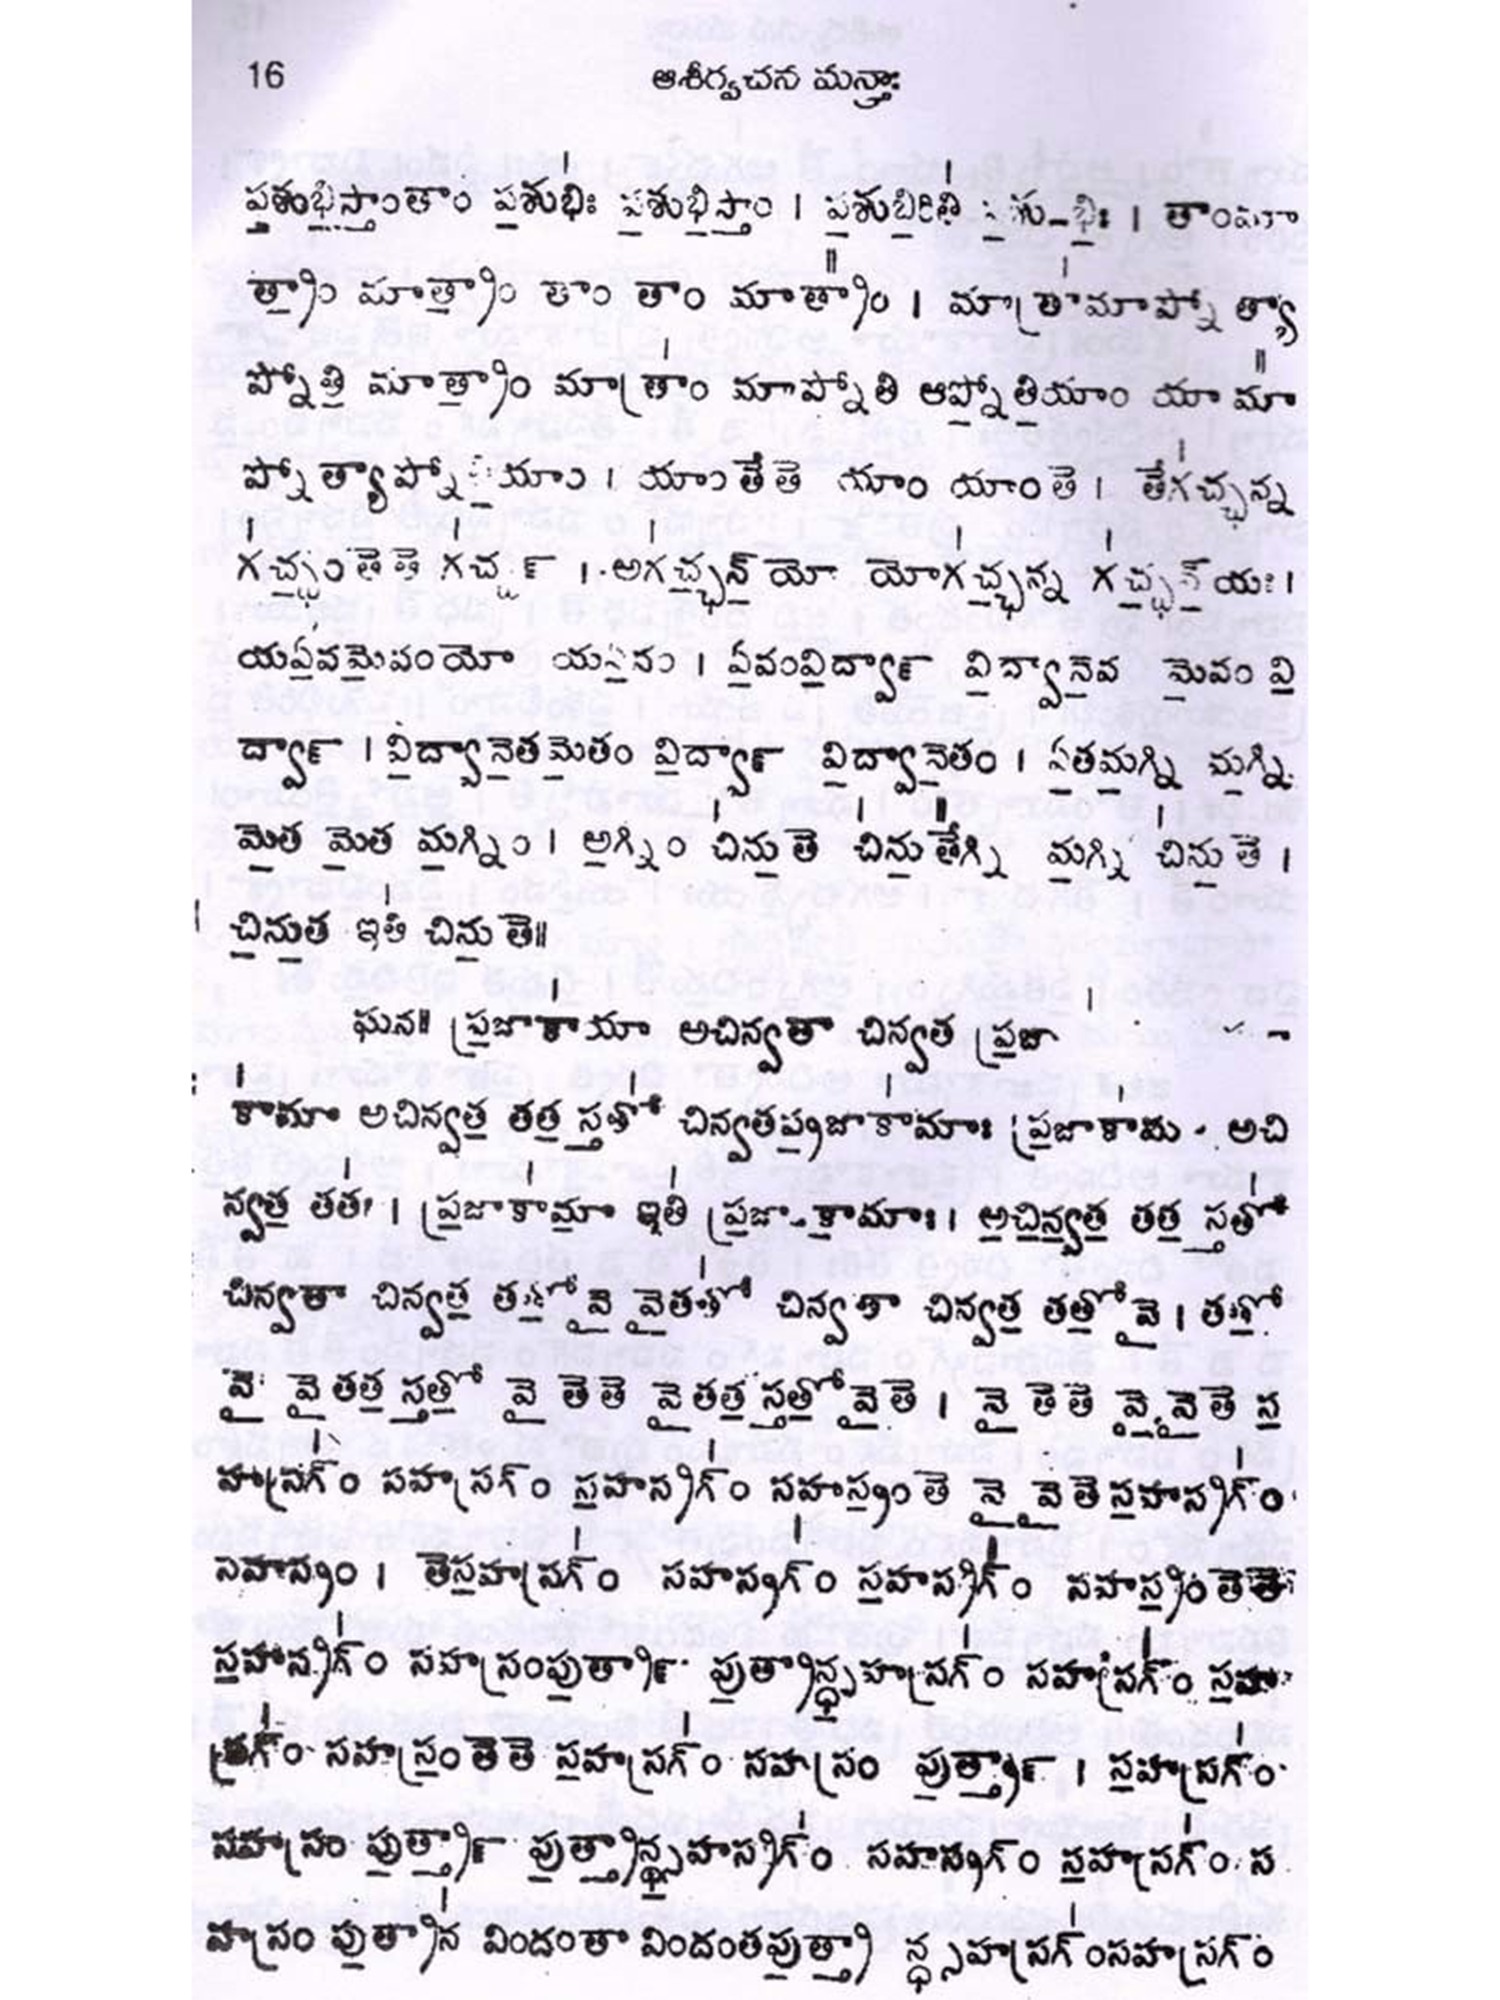 16 ఆశీర్వచన మన్త్రాః
పశుభిస్తాంతాం పశుభిః పశుభిస్తాం । పశుభిరితి పశు-భిః । తాంమా
త్రాం మాత్రాం తాం తాం మాత్రాం । మాత్రామాప్నో త్యా
ప్నోతి మాత్రాం మాత్రాం మాప్నోతి ఆప్నోతియాం యా మా
ప్నోత్యాప్నో యాం । యాంతేతె యాం యాంతె । తేగచ్ఛన్న
గచ్ఛంతెతె గచ్ఛ౯ । అగచ్ఛన్ యో యోగచ్ఛన్న గచ్ఛన్ యః ।
యఏవమెవంయో యఏవం । ఏవంవిద్వా౯ విద్వానెవ మెవం వి
ద్వా౯ । విద్వానెతమెతం విద్వా౯ విద్వానెతం । ఏతమగ్ని మగ్ని
మెత మెత మగ్నిం । అగ్నిం చినుతె చినుతేగ్ని మగ్ని చినుతె ।
చినుత ఇతి చినుతె॥
ఘన॥ ప్రజాకామా అచిన్వతా చిన్వత ప్రజా
కామా అచిన్వత తత స్తతో చిన్వతప్రజాకామాః ప్రజాకామ అచి
న్వత తతః । ప్రజాకామా ఇతి ప్రజా-కామాః । అచిన్వత తత స్తతో
చిన్వతా చిన్వత తతో వై వైతతో చిన్వతా చిన్వత తతోవై । తతో
వై వైతత స్తతో వై తెతె వైతతస్తతోవైతె । వై తెతె వై వైతె స
హస్రగ్ం సహస్రగ్ం సహస్రగ్ం సహస్రంతె వై వైతెసహస్రగ్ం
సహస్రం । తెసహస్రగ్ం సహస్రగ్ం సహస్రగ్ం సహస్రంతెతె
సహస్రగ్ం సహస్రంపుత్రా౯ పుత్రాన్థ్సహస్రగ్ం సహస్రగ్ం సహ
స్రగ్ం సహస్రంతెతె సహస్రగ్ం సహస్రం పుత్త్రా౯ । సహస్రగ్ం
సహస్రం పుత్త్రా౯ పుత్త్రాన్థ్సహస్రగ్ం సహస్రగ్ం సహస్రగ్ం స
హస్రం పుత్రాన విందంతా విందంతపుత్త్రా న్థ్సహస్రగ్ంసహస్రగ్ం